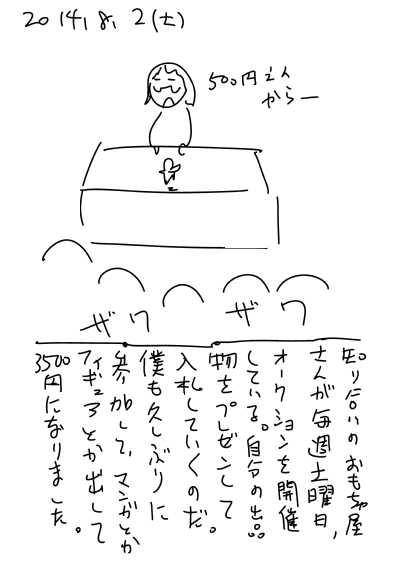 2014.8.2(土)
500円さん
からー
ザワ
ザワ
知り合いのおもちゃ屋
さんが毎週土曜日、
オークションを開催
している。自分の出品
物をプレゼンして
入札していくのだ。
僕も久しぶりに
参加して、マンガとか
フィギュアとか出して
3500円になりました。